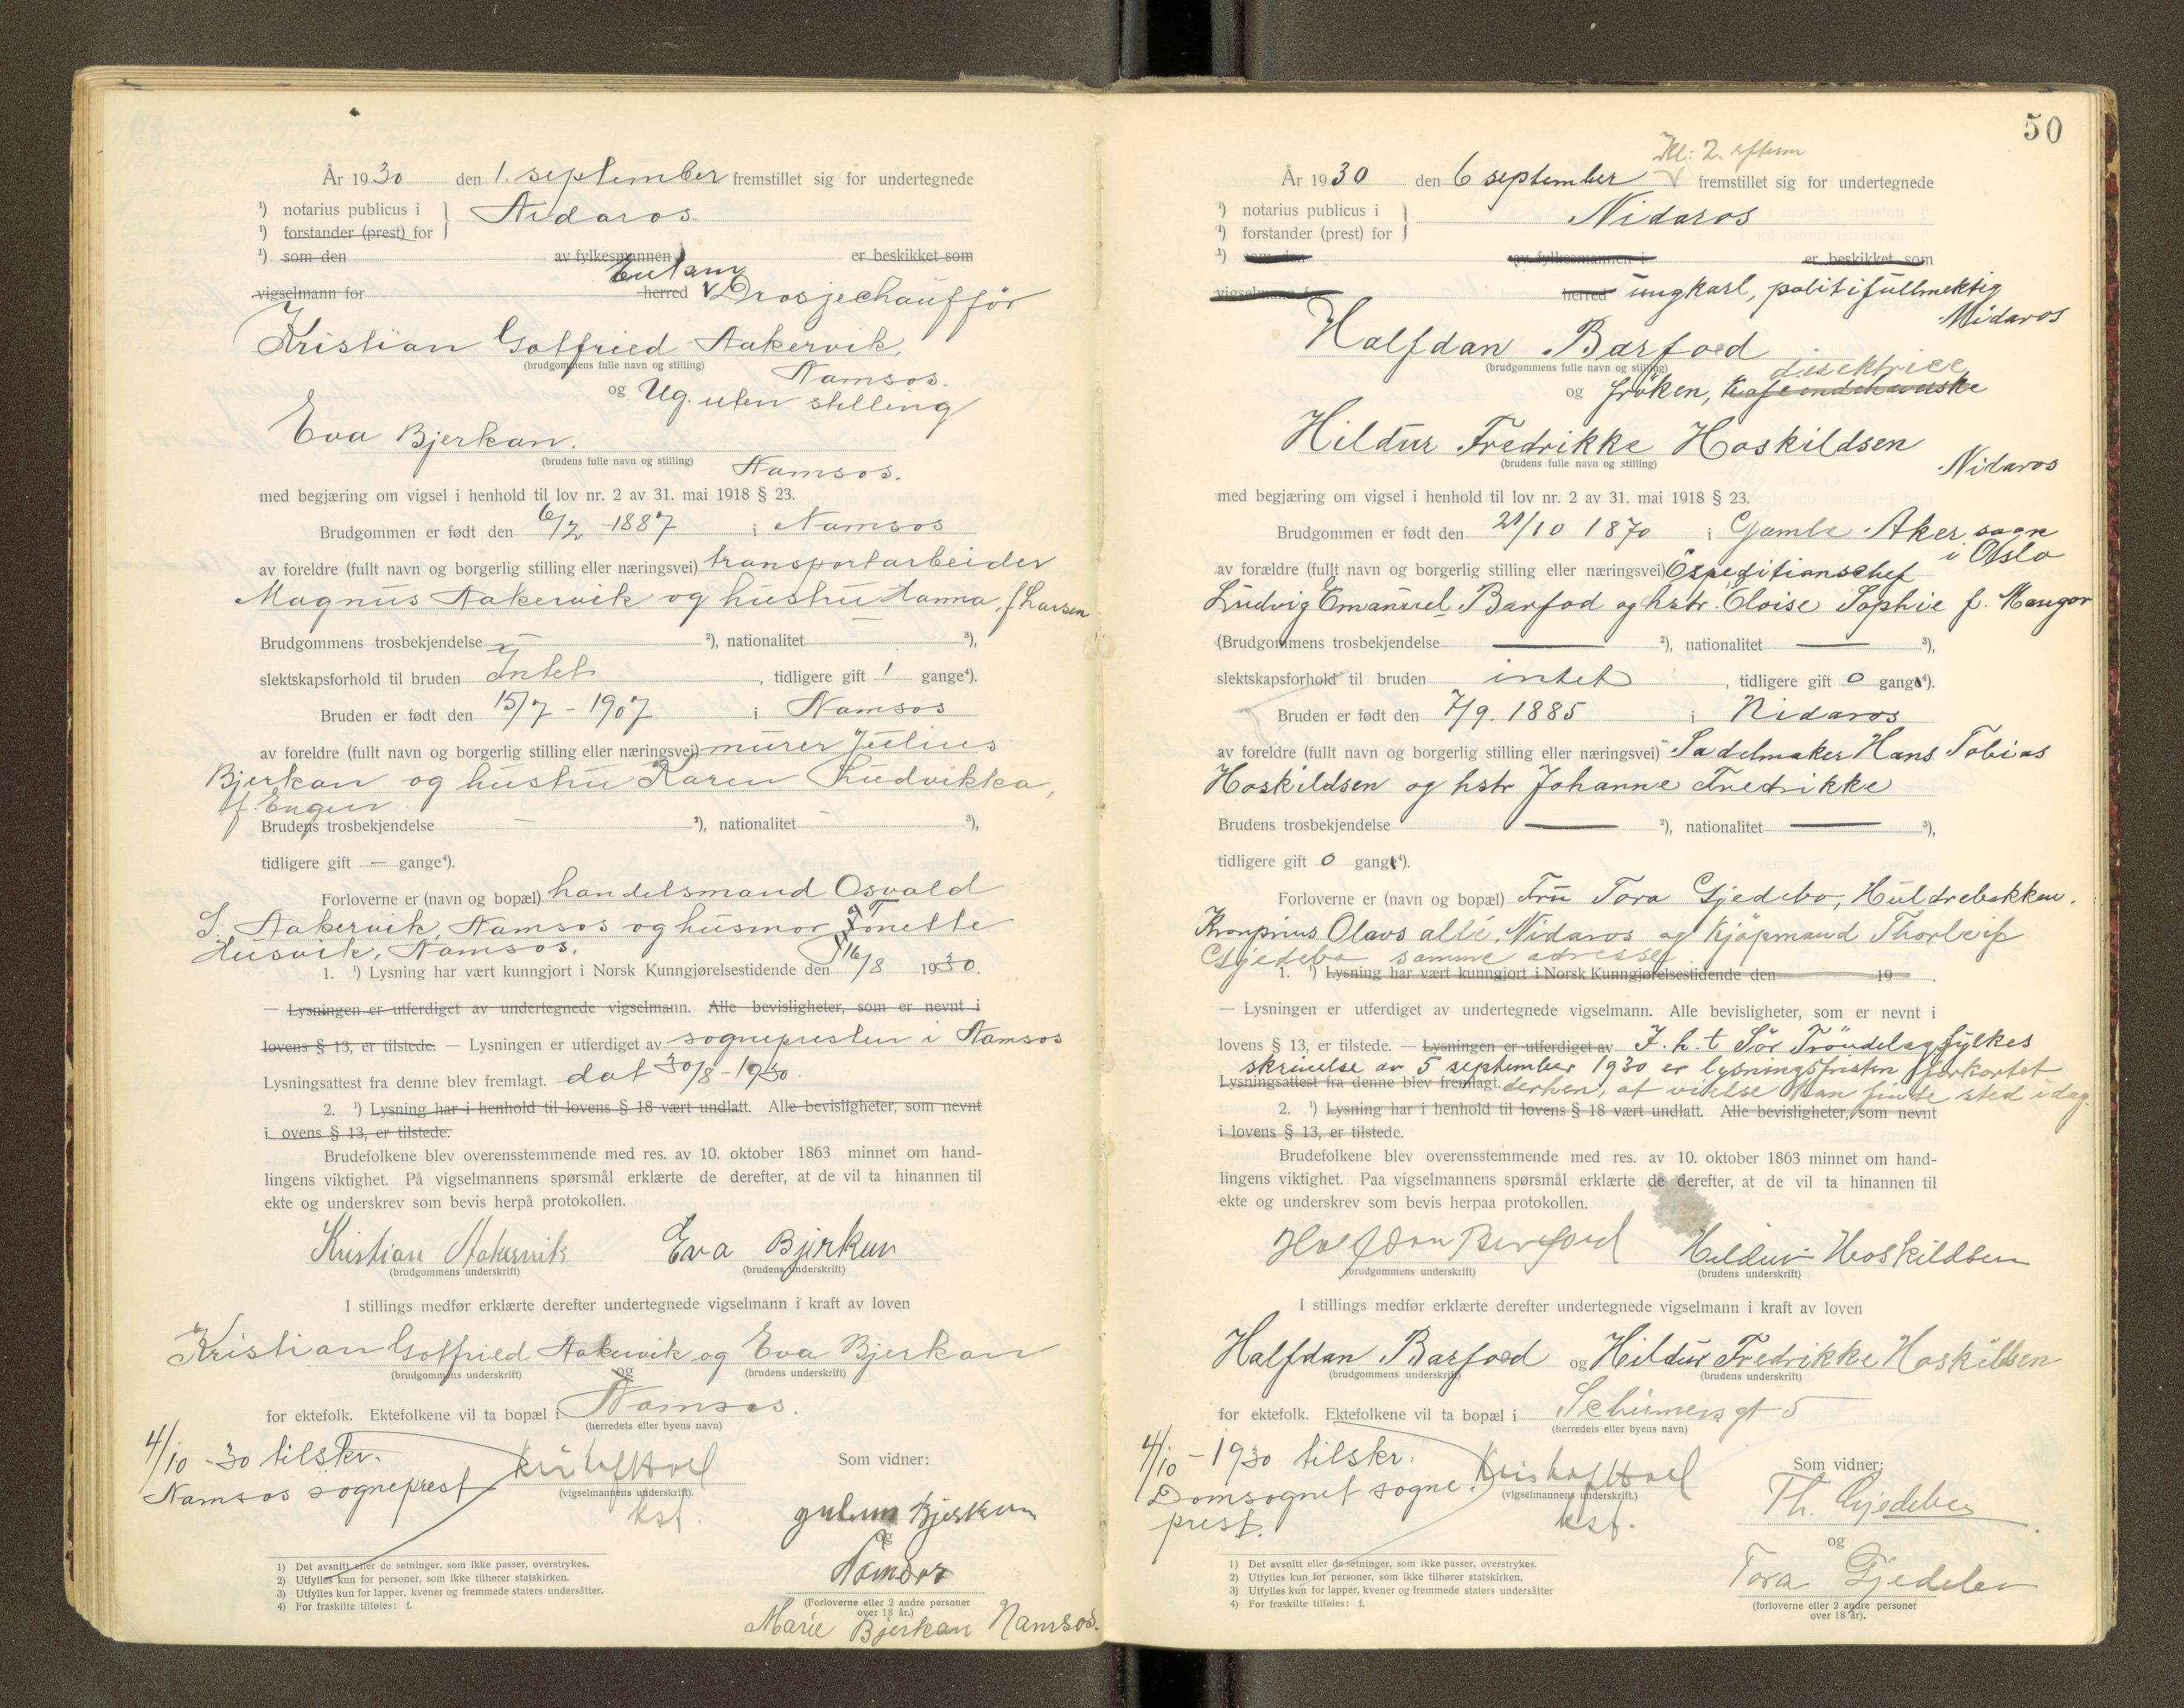 År 1930 den 1. september fremstillet sig for undertegnede
¹) notarius publicus i } Nidaros.
¹) forstander (prest) for
¹) som den av fylkesmannen er beskikket som
vigselmann for herred Drosjechauffør
Kristian Gotfried Aakervik,
(brudgommens fulle navn og stilling)
Namsos.
og Ug. uten stilling
Eva Bjerkan.
(brudens fulle navn og stilling)
Namsos.
med begjæring om vigsel i henhold til lov nr. 2 av 31. mai 1918 § 23.
Brudgommen er født den 6/2 -1887 i Namsos
av foreldre (fullt navn og borgerlig stilling eller næringsvei) transportarbeider
Magnus Aakervik og hustru Hanna, f. Larsen
Brudgommens trosbekjendelse — ²), nationalitet — ³),
slektskapsforhold til bruden Intet, tidligere gift 1 gange⁴).
Bruden er født den 15/7 - 1907 i Namsos
av foreldre (fullt navn og borgerlig stilling eller næringsvei) murer Julius
Bjerkan og hustru Karen Ludvikka,
f. Engen
Brudens trosbekjendelse — ²), nationalitet — ³),
tidligere gift — gange⁴).
Forloverne er (navn og bopæl) handelsmand Osvald
S. Aakervik, Namsos og husmor Tonette
Husvik, Namsos.
1. ¹) Lysning har vært kunngjort i Norsk Kunngjørelsestidende den 16/8 1930.
— Lysningen er utferdiget av undertegnede vigselmann. Alle bevisligheter, som er nevnt i
lovens § 13, er tilstede. — Lysningen er utferdiget av sognepresten i Namsos
Lysningsattest fra denne blev fremlagt. dat 30/8 - 1930.
2. ¹) Lysning har i henhold til lovens § 18 vært undlatt. Alle bevisligheter, som nevnt
i ovens § 13, er tilstede.
Brudefolkene blev overensstemmende med res. av 10. oktober 1863 minnet om hand-
lingens viktighet. På vigselmannens spørsmål erklærte de derefter, at de vil ta hinannen til
ekte og underskrev som bevis herpå protokollen.
Kristian Aakervik Eva Bjerkan
(brudgommens underskrift) (brudens underskrift)
I stillings medfør erklærte derefter undertegnede vigselmann i kraft av loven
Kristian Gotfried Aakervik og Eva Bjerkan
(brudgommens underskrift) og (brudens underskrift)
for ektefolk. Ektefolkene vil ta bopæl i Namsos.
(herredets eller byens navn)
4/10 -30 tilskr.
Namsos sogneprest
Kristof Hoel
(vigselmannens underskrift).
kst.
Som vidner:
Bjerkan
og
Namsos
(Forloverne eller 2 andre personer
over 18 år.)
Marie Bjerkan Namsos.
1) Det avsnitt eller de setninger, som ikke passer, overstrykes.
2) Utfylles kun for personer, som ikke tilhører statskirken.
3) Utfylles kun for lapper, kvener og fremmede staters undersåtter.
4) For fraskilte tilføies: f.
50
Kl: 2. efterm
År 1930 den 6 september fremstillet sig for undertegnede
¹) notarius publicus i } Nidaros
¹) forstander (prest) for
¹) som den av fylkesmannen i er beskikket som
vigselmann for herred ungkarl, politifullmektig
Nidaros
Halfdan Barfoed
(brudgommens fulle navn og stilling)
direktrice
og frøken, Kafeindehaverske
Hildur Fredrikke Hoskildsen
(brudens fulle navn og stilling)
Nidaros
med begjæring om vigsel i henhold til lov nr. 2 av 31. mai 1918 § 23.
Brudgommen er født den 21/10 1870 i Gamle Aker sogn
i Oslo
av forældre (fullt navn og borgerlig stilling eller næringsvei) Expeditionschef
Ludvig Emanuel Barfod og hstr. Eloise Sophie f. Mangor
(Brudgommens trosbekjendelse — ²), nationalitet — ³),
slektskapsforhold til bruden intet, tidligere gift 0 gange⁴).
Bruden er født den 7/9. 1885 i Nidaros
av foreldre (fullt navn og borgerlig stilling eller næringsvei) Sadelmaker Hans Tobias
Hoskildsen og hstr Johanne Fredrikke
Brudens trosbekjendelse — ²), nationalitet — ³),
tidligere gift 0 gange⁴).
Forloverne er (navn og bopæl) Fru Tora Gjedebo, Huldrebakken.
Kronprins Olavs allé, Nidaros og Kjøpmand Thorleif
Gjedebo samme adresse
1. ¹) Lysning har vært kunngjort i Norsk Kunngjørelsestidende den 19 .
— Lysningen er utferdiget av undertegnede vigselmann. Alle bevisligheter, som er nevnt i
lovens § 13, er tilstede. — Lysningen er utferdiget av I. h. t Sør Trøndelag fylkes
skrivelse av 5 september 1930 er lysningsfristen forkortet
Lysningsattest fra denne blev fremlagt. derhen, at vielse kan finde sted idag.
2. ¹) Lysning har i henhold til lovens § 18 vært undlatt. Alle bevisligheter, som nevnt
i lovens § 13, er tilstede.
Brudefolkene blev overensstemmende med res. av 10. oktober 1863 minnet om hand-
lingens viktighet. Paa vigselmannens spørsmål erklærte de derefter, at de vil ta hinannen til
ekte og underskrev som bevis herpaa protokollen.
Halfdan Barfoed Hildur Hoskildsen
(brudgommens underskrift) (brudens underskrift)
I stillings medfør erklærte derefter undertegnede vigselmann i kraft av loven
Halfdan Barfoed og Hildur Fredrikke Hoskildsen
(brudgommens underskrift) (brudens underskrift)
for ektefolk. Ektefolkene vil ta bopæl i Schirmers gt 5
(herredets eller byens navn)
4/10 - 1930 tilskr.
Domsognet sogne-
prest.
Kristof Hoel
(vigselmannens underskrift.)
kst.
Som vidner:
Th. Gjedebo
og
Tora Gjedebo
(forloverne eller 2 andre personer
over 18 år).
1) Det avsnitt eller de setninger, som ikke passer, overstrykes.
2) Utfylles kun for personer, som ikke tilhører statskirken.
3) Utfylles kun for lapper, kvener og fremmede staters undersåtter
4) For fraskilte tilføies: f.